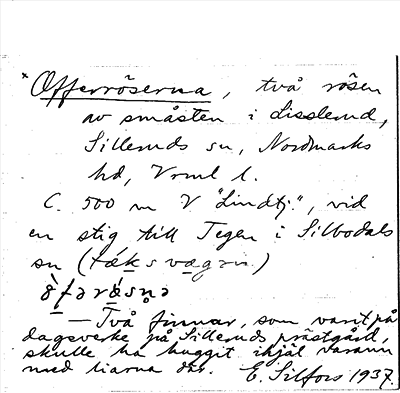 Offerröserna, två rösen
av småsten i Lisslerud,
Silleruds sn, Nordmarks
hd, Vrml l.
C. 500 m V "Lindtj.", vid
en stig till Tegen i Silbodals
sn (
— Två finnar, som varit på
dagsverke på Silleruds prästgård,
skulle ha huggit ihjäl varann
med liarna där. E. Silfors 1937.